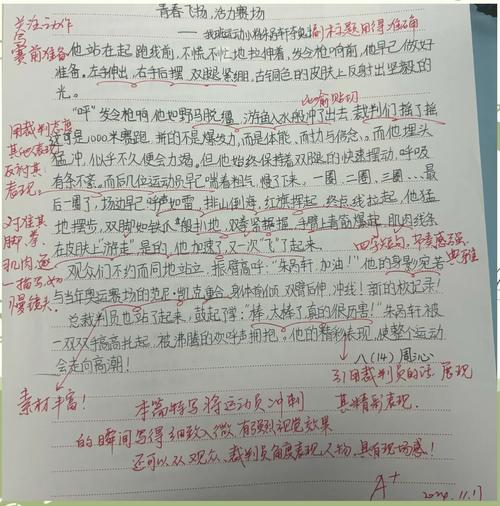 青春飞扬,活力赛场
——我班运动小将朱芮轩
副标题用得准确
关注动作
写
赛前准备
他站在起跑线前,不慌不忙地拉伸着,发令枪响前,他早已做好
准备。左手伸出,右手后摆,双腿紧绷,古铜色的皮肤上反射出坚毅的
光。
比喻贴切
"呼"发令枪响他如野马脱缰,游鱼入水般冲了出去。裁判们摇了摇
用裁判态度
其他表现
反衬其
表现。
这可是1000米赛跑,拼的不是爆发力,而是体能,耐力与信念。而他埋头
猛冲,似乎不久便会力竭。但他始终保持着双腿的快速摆动,呼吸
有条不紊。而后几位运动员早已喘着粗气,慢了下来。一圈、二圈、三圈、…最
后一圈了,场边早已呼声如雷,排山倒海,红旗挥起,终点线拉起,他猛
对准其
脚、拳、
肌肉,逐
一描写,如
慢镜头。
地摆步,双脚如铁爪般扒地,双拳紧握,手臂上青筋爆起,肌肉线条
在皮肤上"游走"是的,他加速了,又一次"飞"了起来。
四字短句,节奏感强,
典雅
观众们不约而同地站立,振臂高呼:"朱芮轩,加油!"他的身影宛若
与当年奥运赛场的范尼·凯克重合,身体前倾,双臂后伸,冲线!新的校记录!
总裁判员也站了起来,鼓起了掌:"棒,太棒了,真的很厉害!"朱芮轩被
一双双手高高扎起,被沸腾的欢呼声拥抱。他的精彩表现,使整个运动
会走向高潮!
八(14) 周沁
素材丰富!
引用裁判员的话,展现
其精彩表现。
本篇特写将运动员冲刺
的瞬间写得细致入微,有强烈视觉效果
还可以从观众、裁判员角度表现人物,具有现场感!
A+
2024.11.17